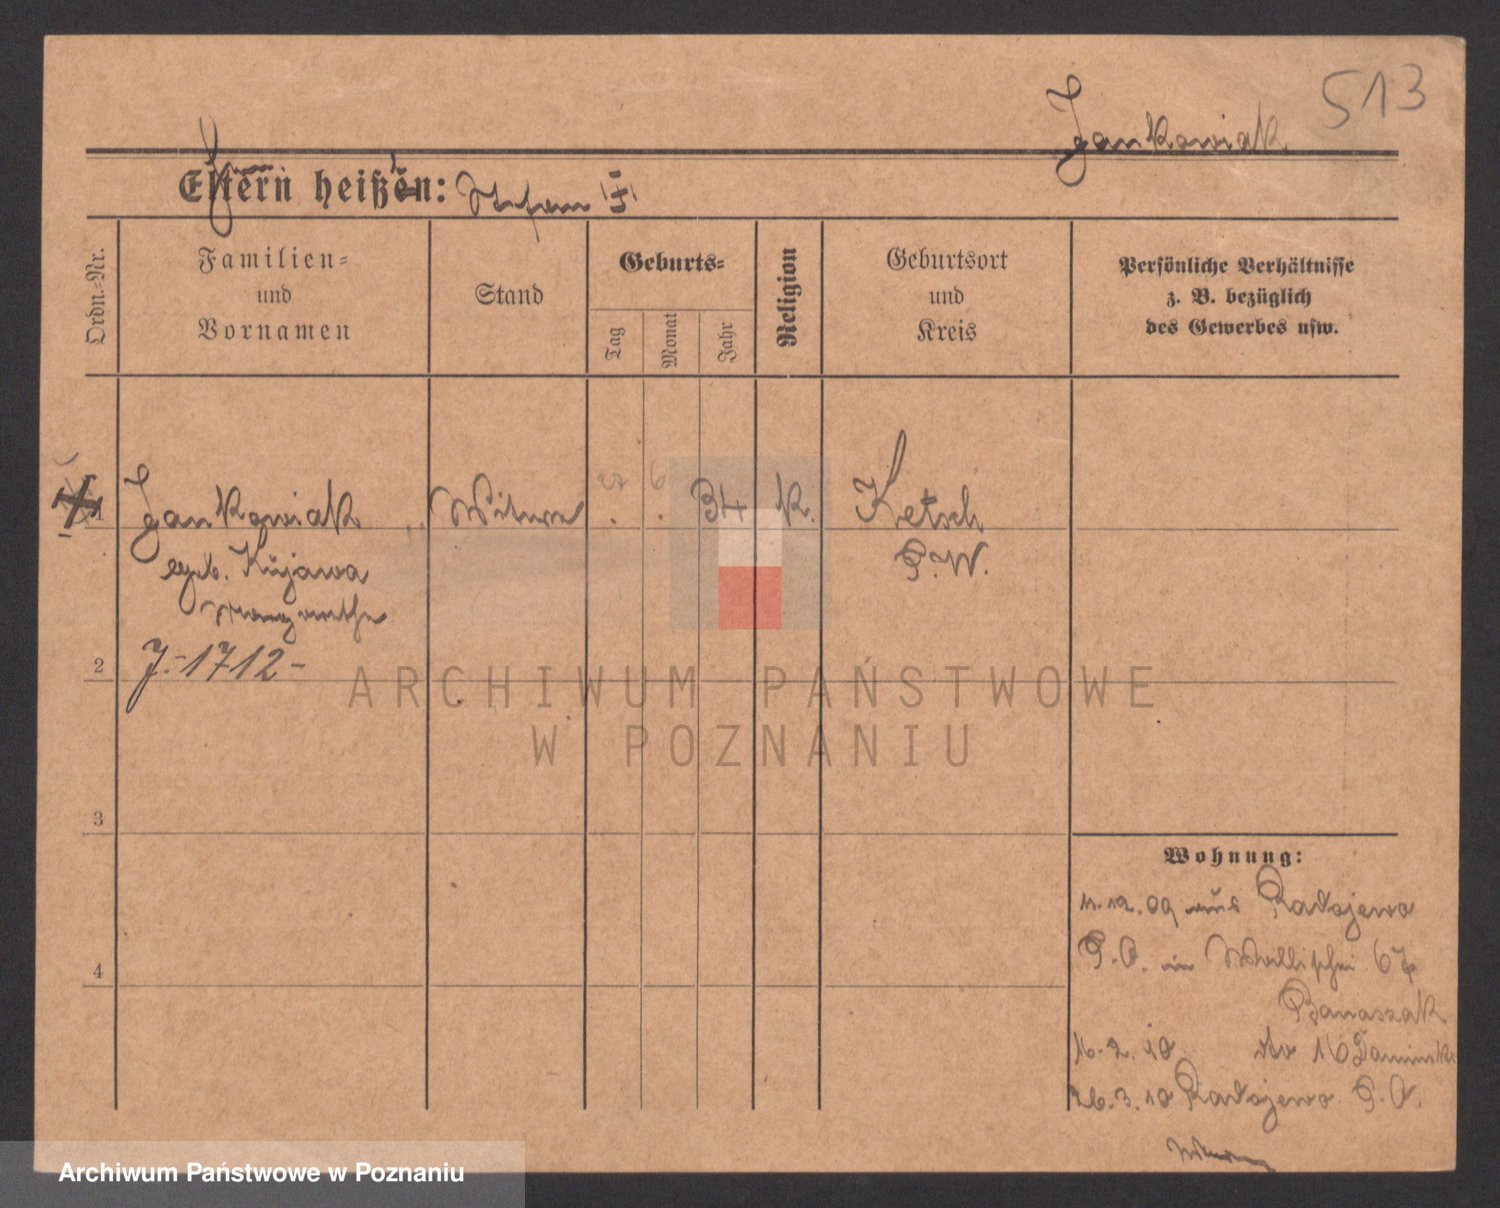 513
Jankowiak
Eltern heißen: Stefan
Ordn.-Nr.
Familien-
und
Vornamen
Stand
Geburts-
Tag
Monat
Jahr
Religion
Geburtsort
und
Kreis
Persönliche Verhältnisse
z. B. bezüglich
des Gewerbes usw.
1 Jankowiak Witwe 27 6. 34 k. Ketsch
geb. Kujawa P.W.
Margarethe
2 J.-1712-
3
4
Wohnung:
11.12.09 aus Radojewo
P.O. in Wallischei 67
Banaszak
16.2.10 dto 16
26.3.10 Radojewo P.O.
ARCHIWUM PAŃSTWOWE
W POZNANIU
Archiwum Państwowe w Poznaniu